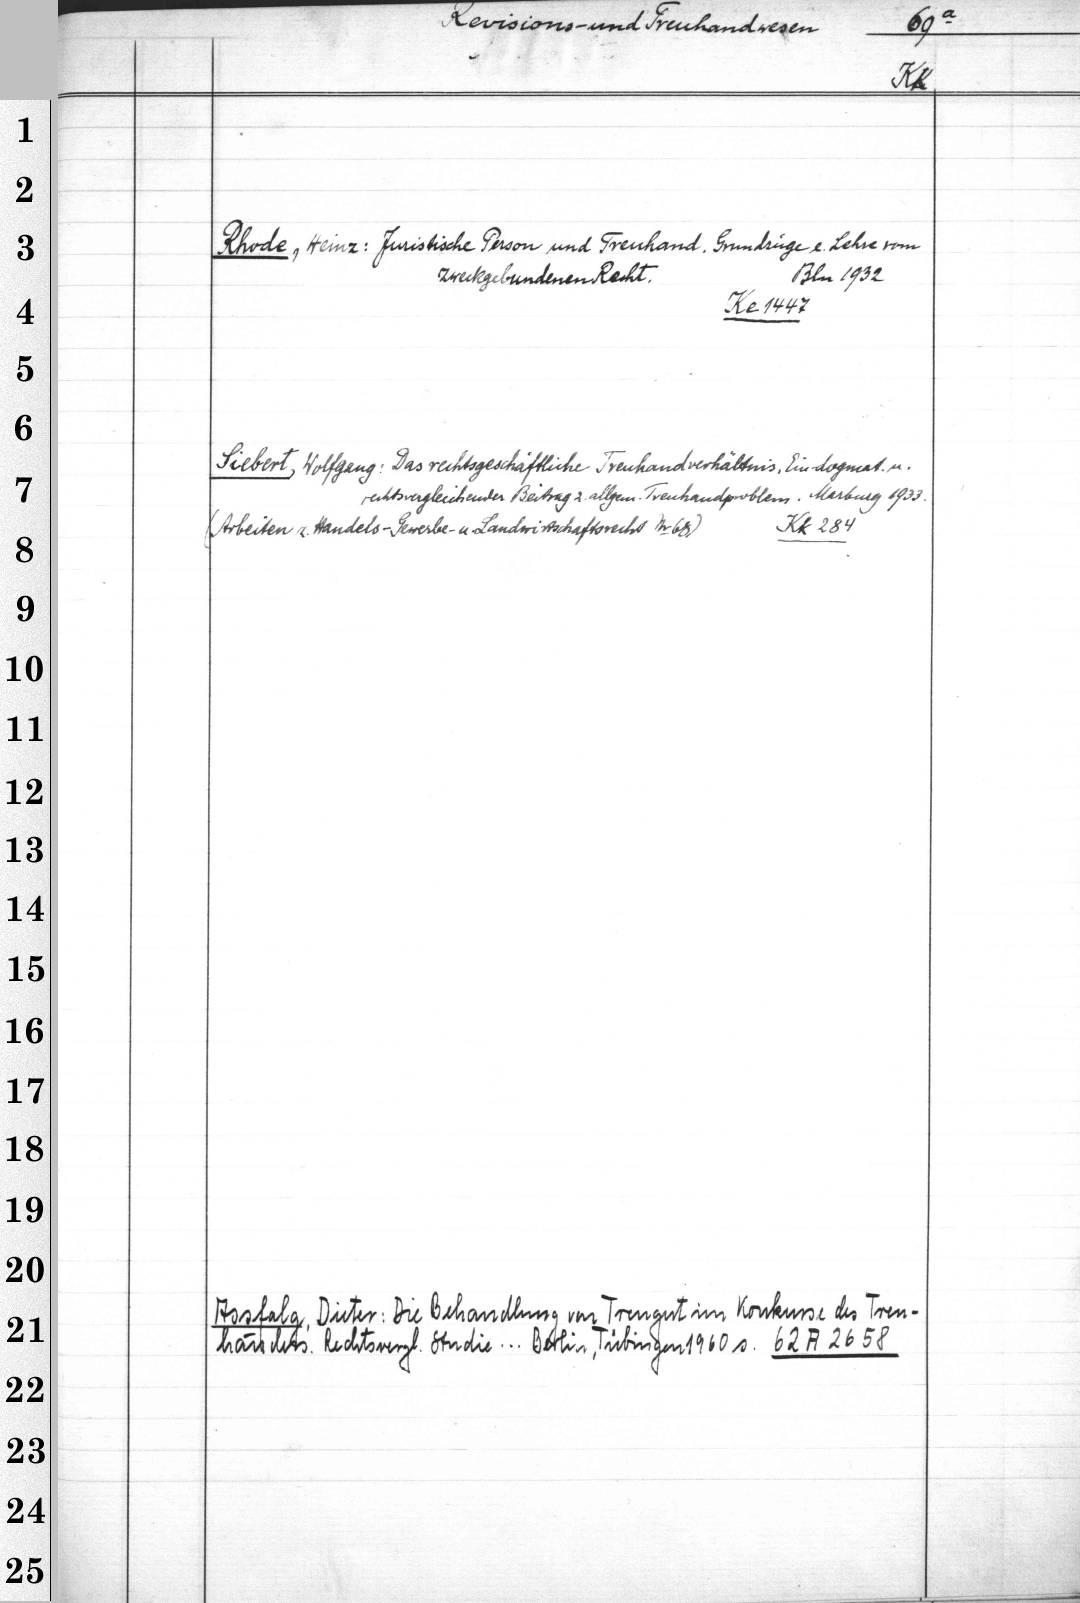 Revisions- und Treuhandwesen 69a
Kk
1
2
3
Rhode, Heinz: Juristische Person und Treuhand. Grundzüge e. Lehre vom
zweckgebundenen Recht. Bln 1932
4
Ke 1447
5
6
Siebert, Wolfgang: Das rechtsgeschäftliche Treuhandverhältnis. Ein dogmat. u.
7
rechtsvergleichender Beitrag z. allgem. Treuhandproblem. Marburg 1933.
(Arbeiten z. Handels- Gewerbe- u. Landwirtschaftsrecht Nr 68) Kk 284
8
9
10
11
12
13
14
15
16
17
18
19
20
Assfalg, Dieter: Die Behandlung von Treugut im Konkurse des Treu-
21
händers. Rechtsvergl. Studie ... Berlin, Tübingen 1960 s. 62 A 2658
22
23
24
25